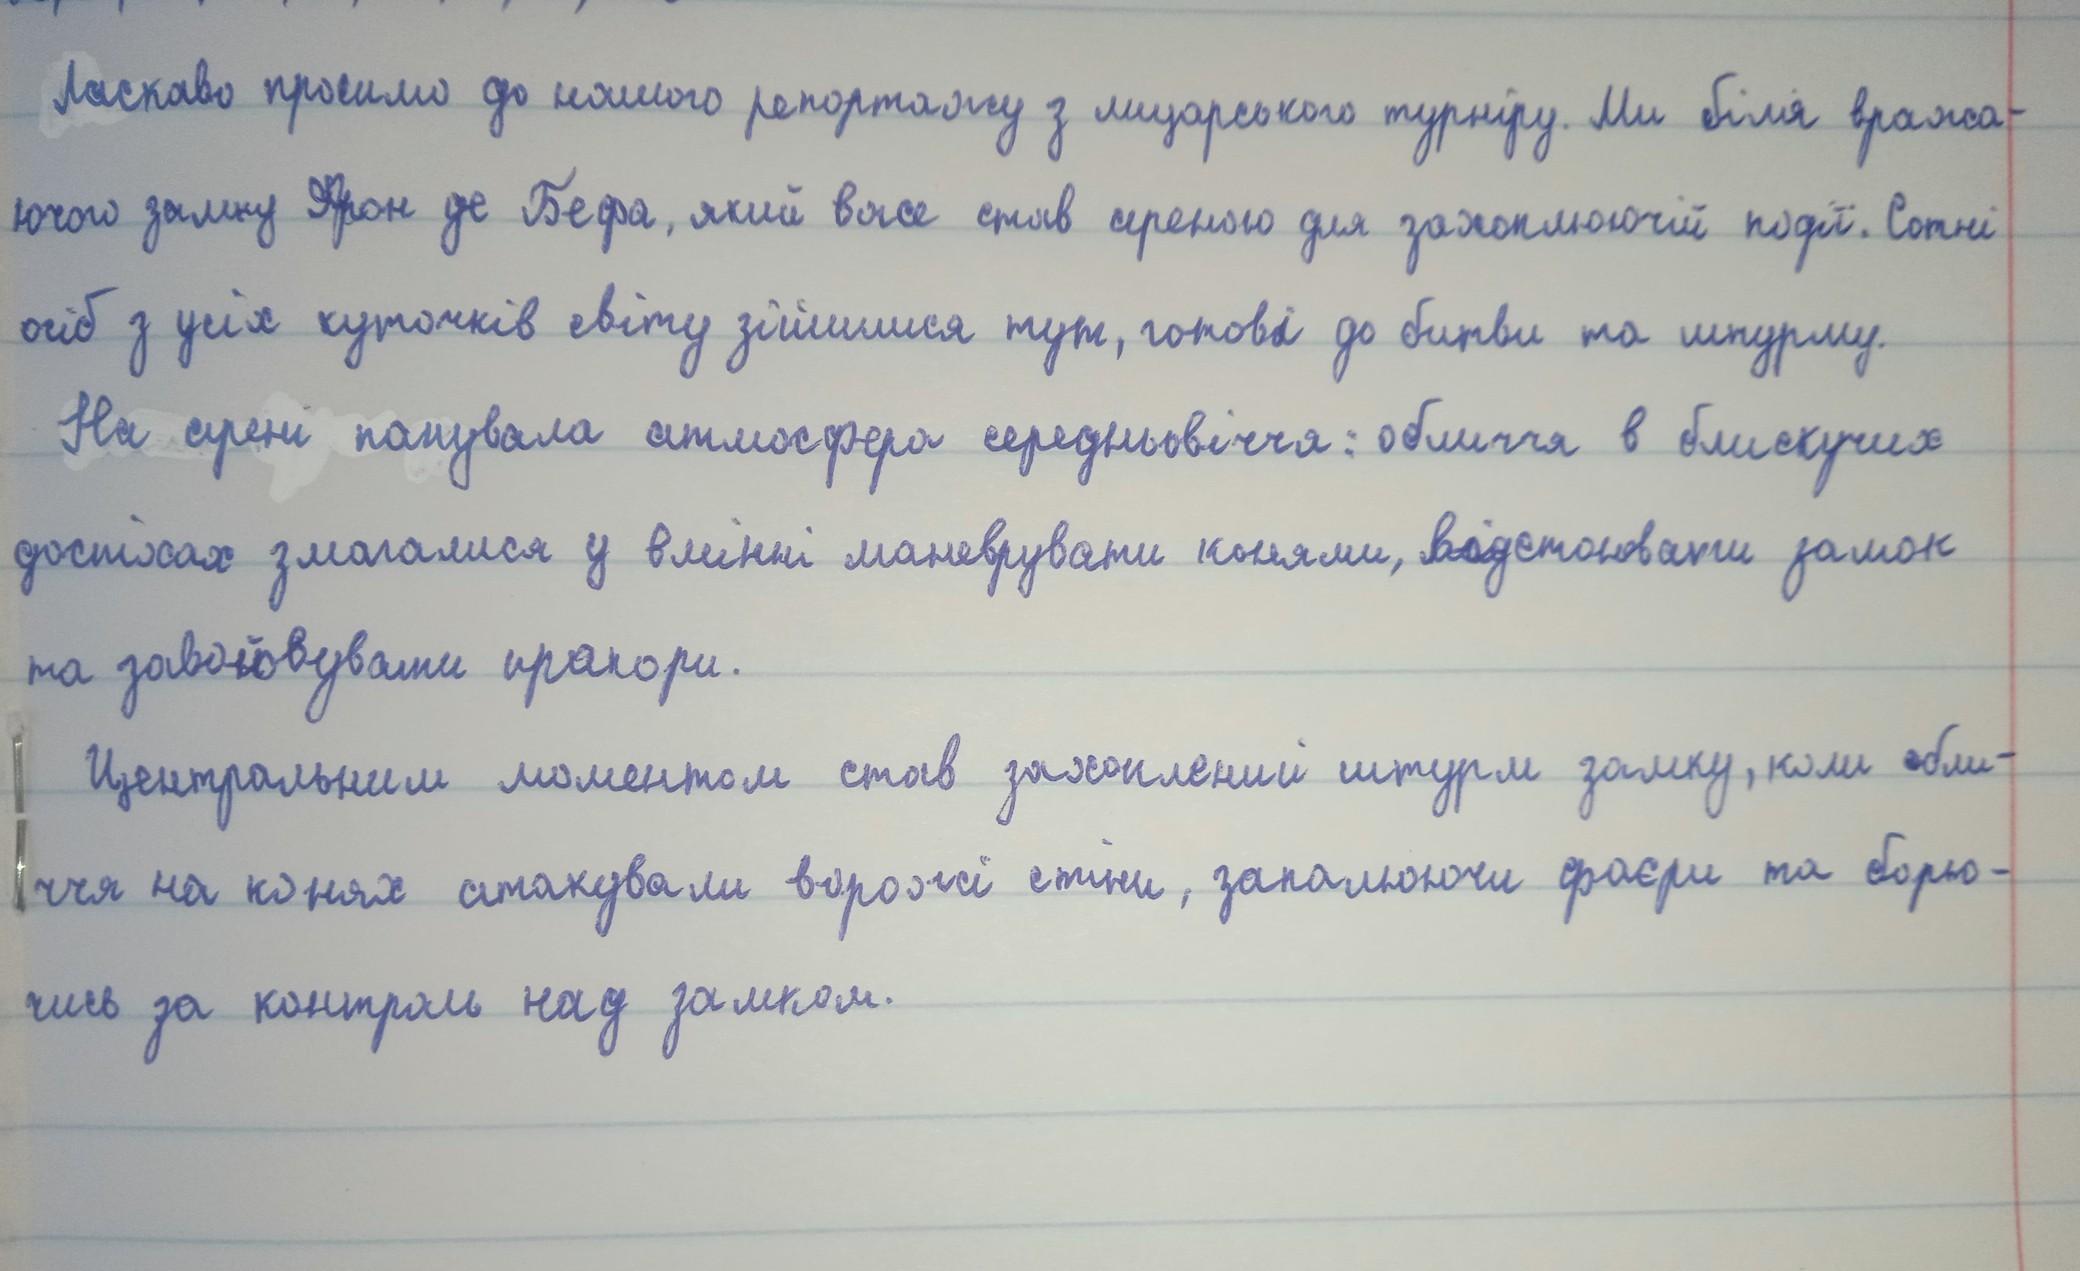 Ласкаво просимо до нашого репортажу з лицарського турніру. Ми біля вража-
ючого замку Фрон де Бефа, який вже став ареною для захоплюючій події. Сотні
осіб з усіх куточків світу зійшлися тут, готові до битви та штурму.
На арені панувала атмосфера середньовіччя: обличчя в блискучих
доспіхах змагалися у вмінні маневрувати конями, відстоювати замок
та завойовувати прапори.
Центральним моментом став захоплений штурм замку, коли обли-
ччя на конях атакували ворожі стіни, запалюючи фаєри та борю-
чись за контроль над замком.